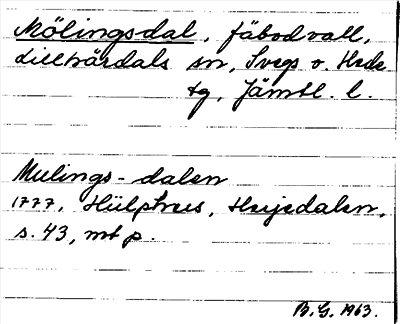 Mölingsdal, fäbodvall,
Lillhärdals sn, Svegs o. Hede
tg, Jämtl. l.
Mulings-dalen
1777, Hülphers, Herjedalen,
s. 43, mt p.
B.G. 1963.